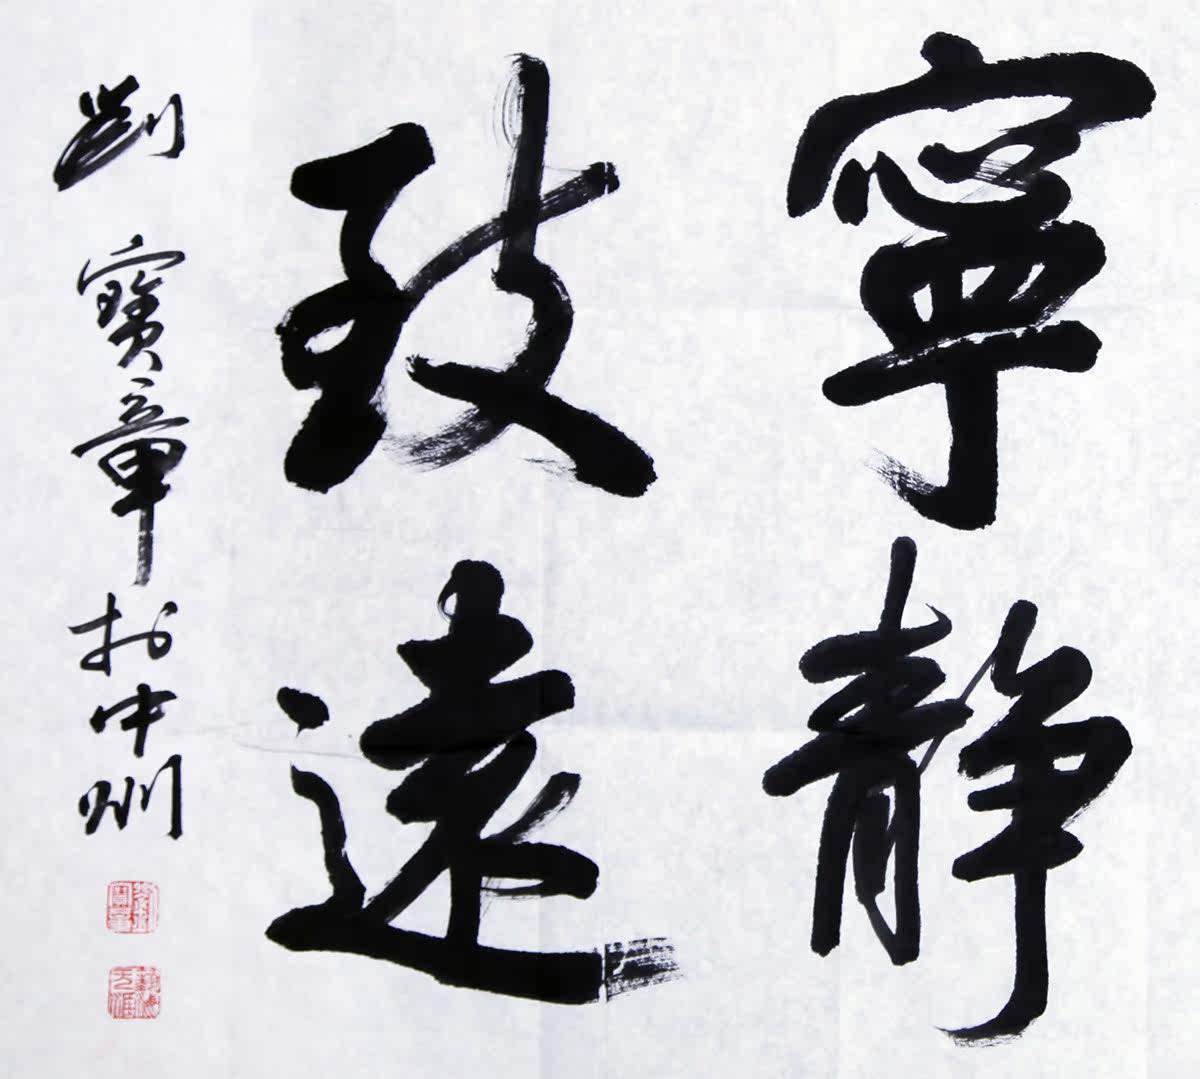 寧静
致遠
劉寶章於中州